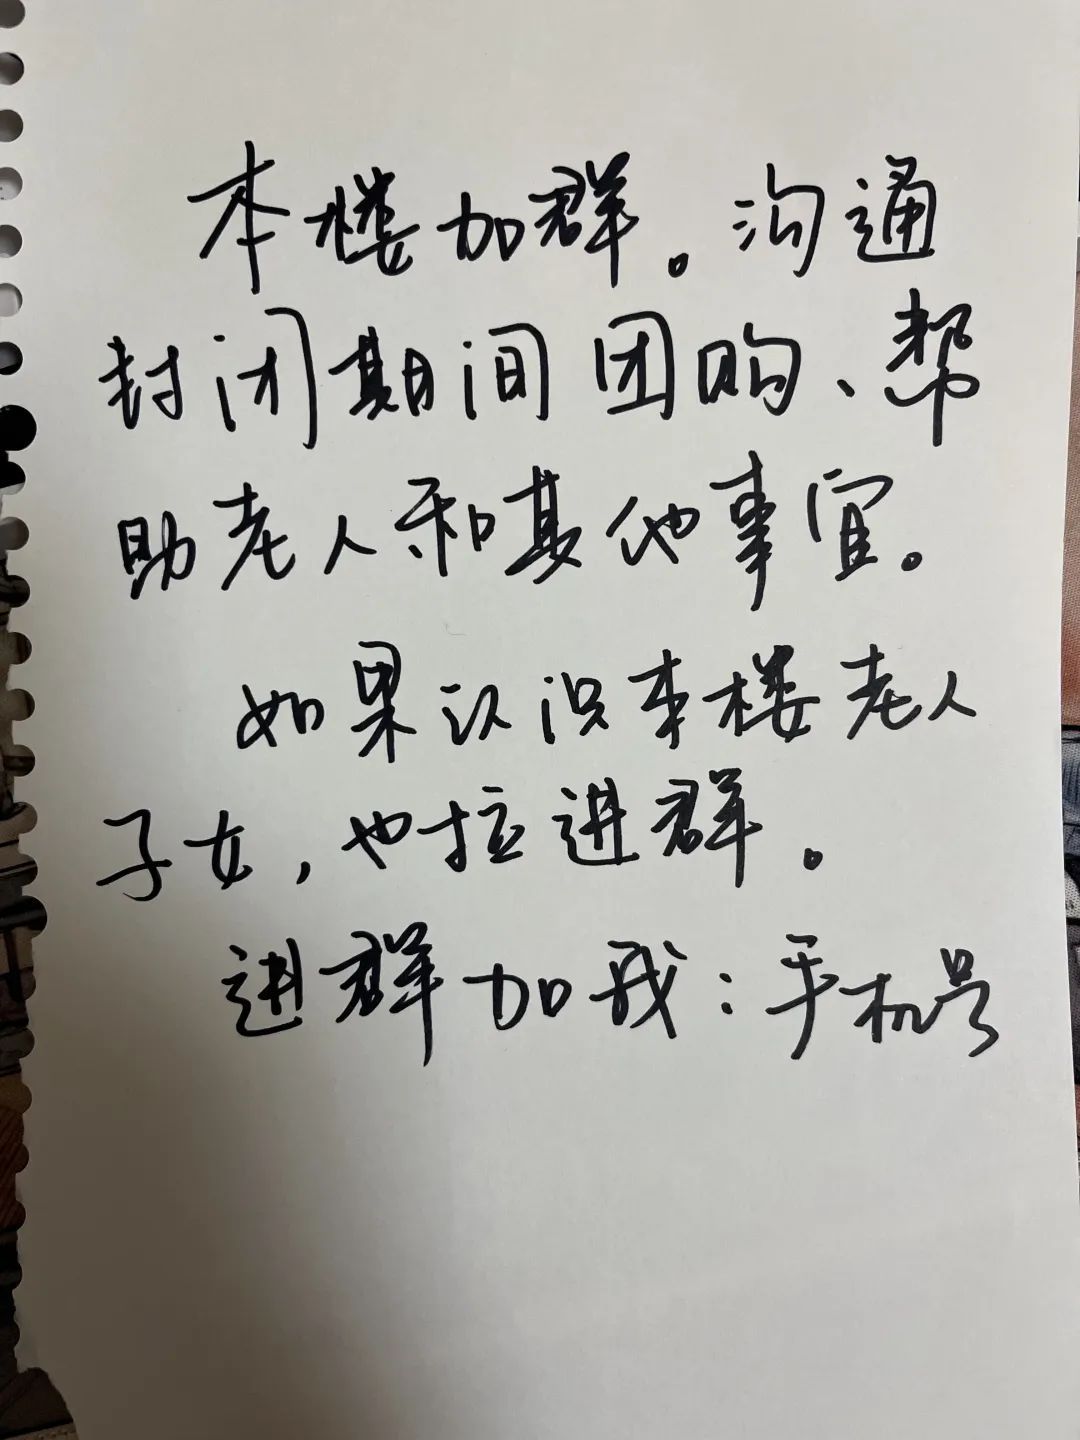 本楼加群。沟通
封闭期间团购、帮
助老人和其他事宜。
如果认识本楼老人
子女，也拉进群。
进群加我：手机号